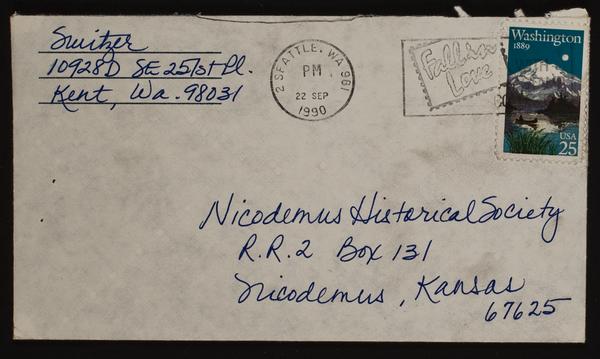 Switzer
10928D SE 251st Pl.
Kent, Wa. 98031
SEATTLE, WA 981
PM
22 SEP
1990
2
Fall in
Love
Washington
1889
USA
25
Nicodemus Historical Society
R.R.2 Box 131
Nicodemus, Kansas
67625